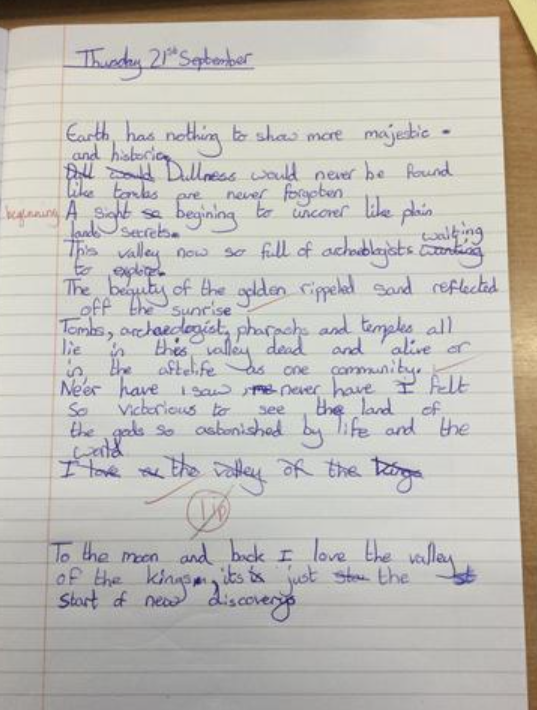 Thursday 21st September
Earth has nothing to show more majestic -
and historic.
Dull would Dullness would never be found
like tombs are never forgoten
beginning A sight so begining to uncover like plain
lands secrets.
This valley now so full of achaeblogists wanting waiting
to explore.
The beauty of the golden rippeled sand reflected
off the sunrise
Tombs, archaeologist, pharaohs and temples all
lie in this valley dead and alive or
in the aftelife as one community.
Ne'er have I saw, never have I felt
So victorious to see the land of
the gods so astonished by life and the
world
I love the valley of the kings
To the moon and back I love the valley
of the kings, its just the
Start of new discoverys